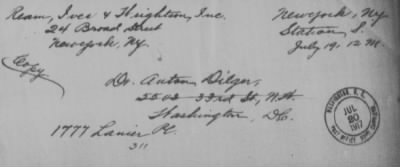 Ream, Ives & Wrightson, Inc.
24 Broad Street
New York, Ny.
Copy
New York, Ny
Station S.
July 19, 12 M.
Dr. Anton Dilger,
5502 33rd St, N.W.
Washington, D.C.
1777 Lanier Pl.
311
WASHINGTON, D.C.
JUL
20
1917